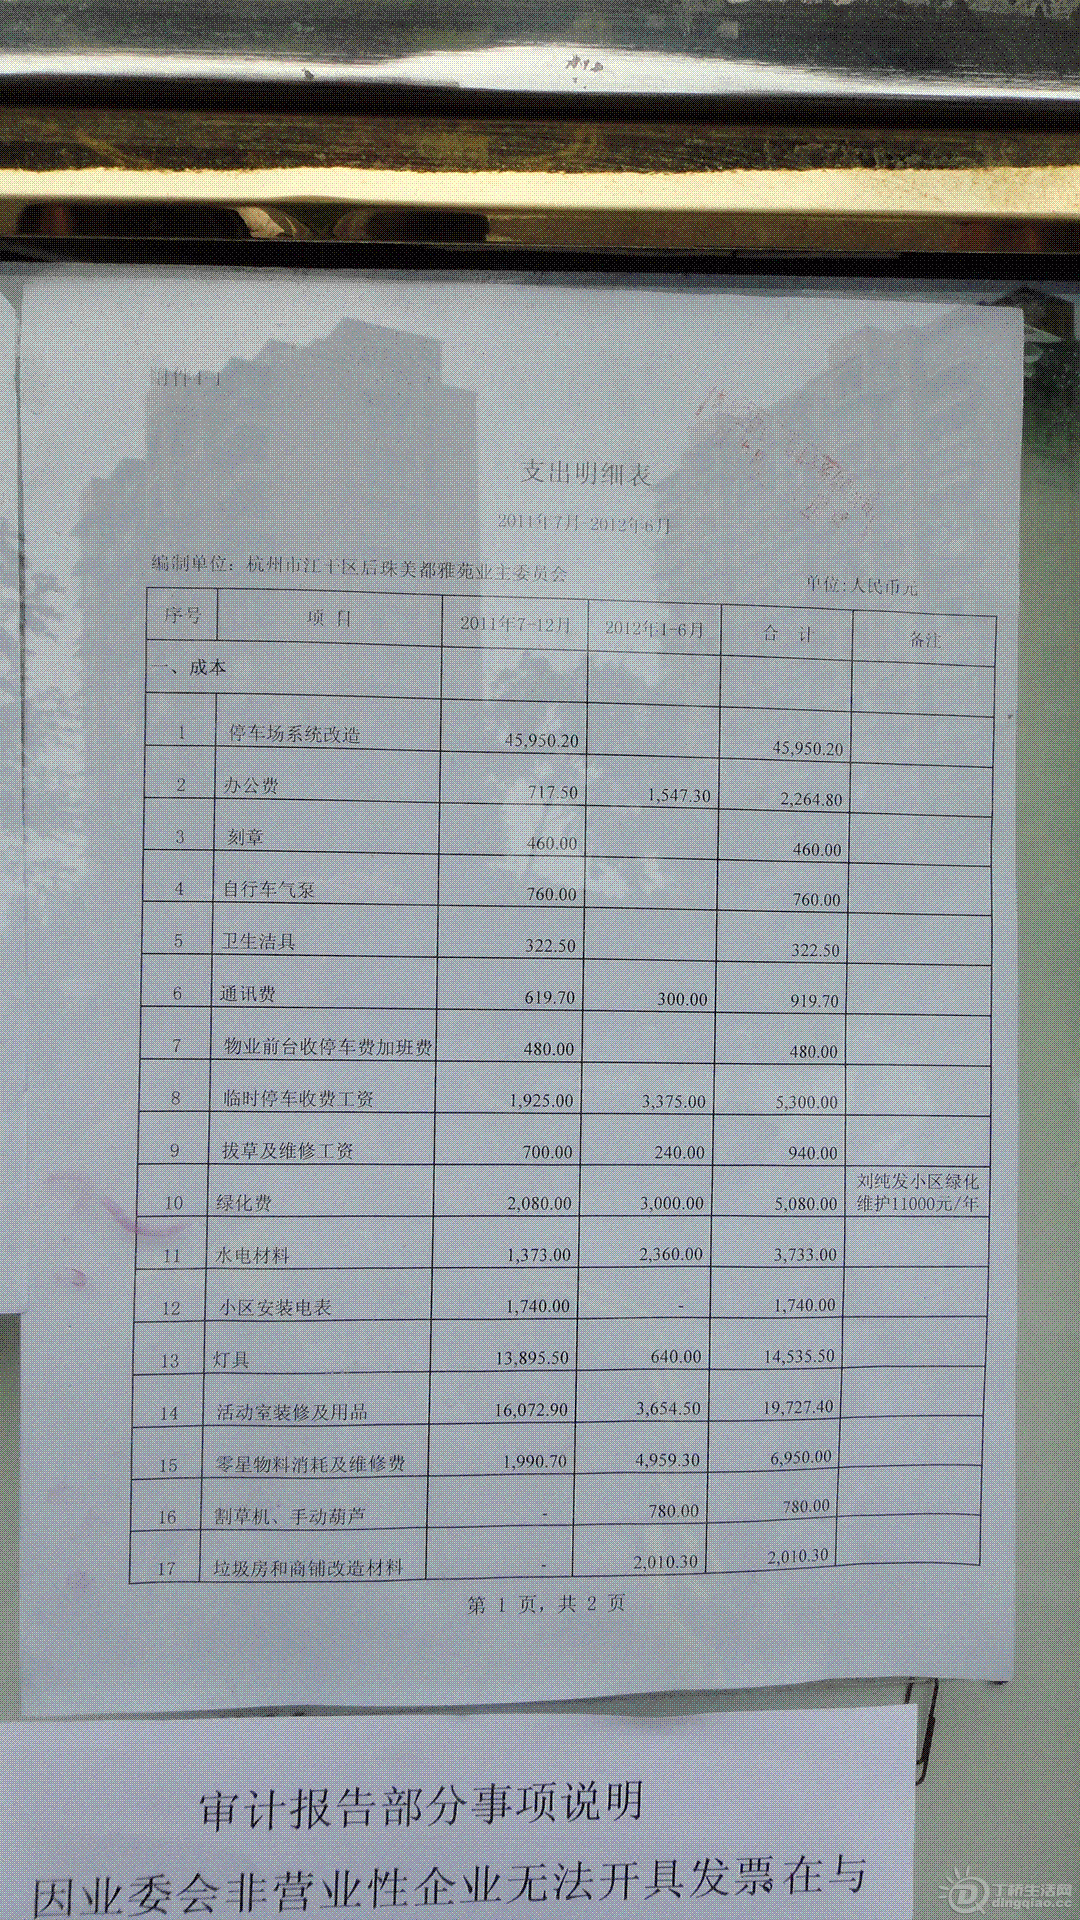 附件4-1
支出明细表
2011年7月-2012年6月
编制单位：杭州市江干区后珠美都雅苑业主委员会 单位:人民币元
序号 项 目 2011年7-12月 2012年1-6月 合 计 备注
一、成本
1 停车场系统改造 45,950.20 45,950.20
2 办公费 717.50 1,547.30 2,264.80
3 刻章 460.00 460.00
4 自行车气泵 760.00 760.00
5 卫生洁具 322.50 322.50
6 通讯费 619.70 300.00 919.70
7 物业前台收停车费加班费 480.00 480.00
8 临时停车收费工资 1,925.00 3,375.00 5,300.00
9 拔草及维修工资 700.00 240.00 940.00
10 绿化费 2,080.00 3,000.00 5,080.00 刘纯发小区绿化
维护11000元/年
11 水电材料 1,373.00 2,360.00 3,733.00
12 小区安装电表 1,740.00 - 1,740.00
13 灯具 13,895.50 640.00 14,535.50
14 活动室装修及用品 16,072.90 3,654.50 19,727.40
15 零星物料消耗及维修费 1,990.70 4,959.30 6,950.00
16 割草机、手动葫芦 - 780.00 780.00
17 垃圾房和商铺改造材料 - 2,010.30 2,010.30
第 1 页，共 2 页
审计报告部分事项说明
因业委会非营业性企业无法开具发票在与
丁桥生活网
dingqiao.cc